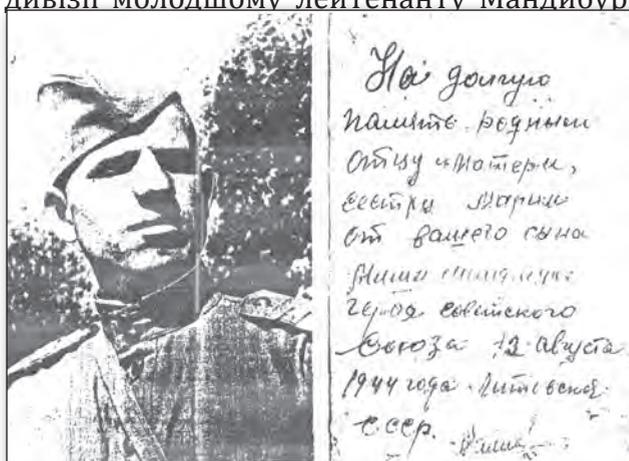 дивізії молодшому лейтенанту Мандибур
На долгую
память родным
отцу и матери,
сестры Марии
от вашего сына
Миши
героя советского
Союза 12 августа
1944 года. Литовская
ССР.